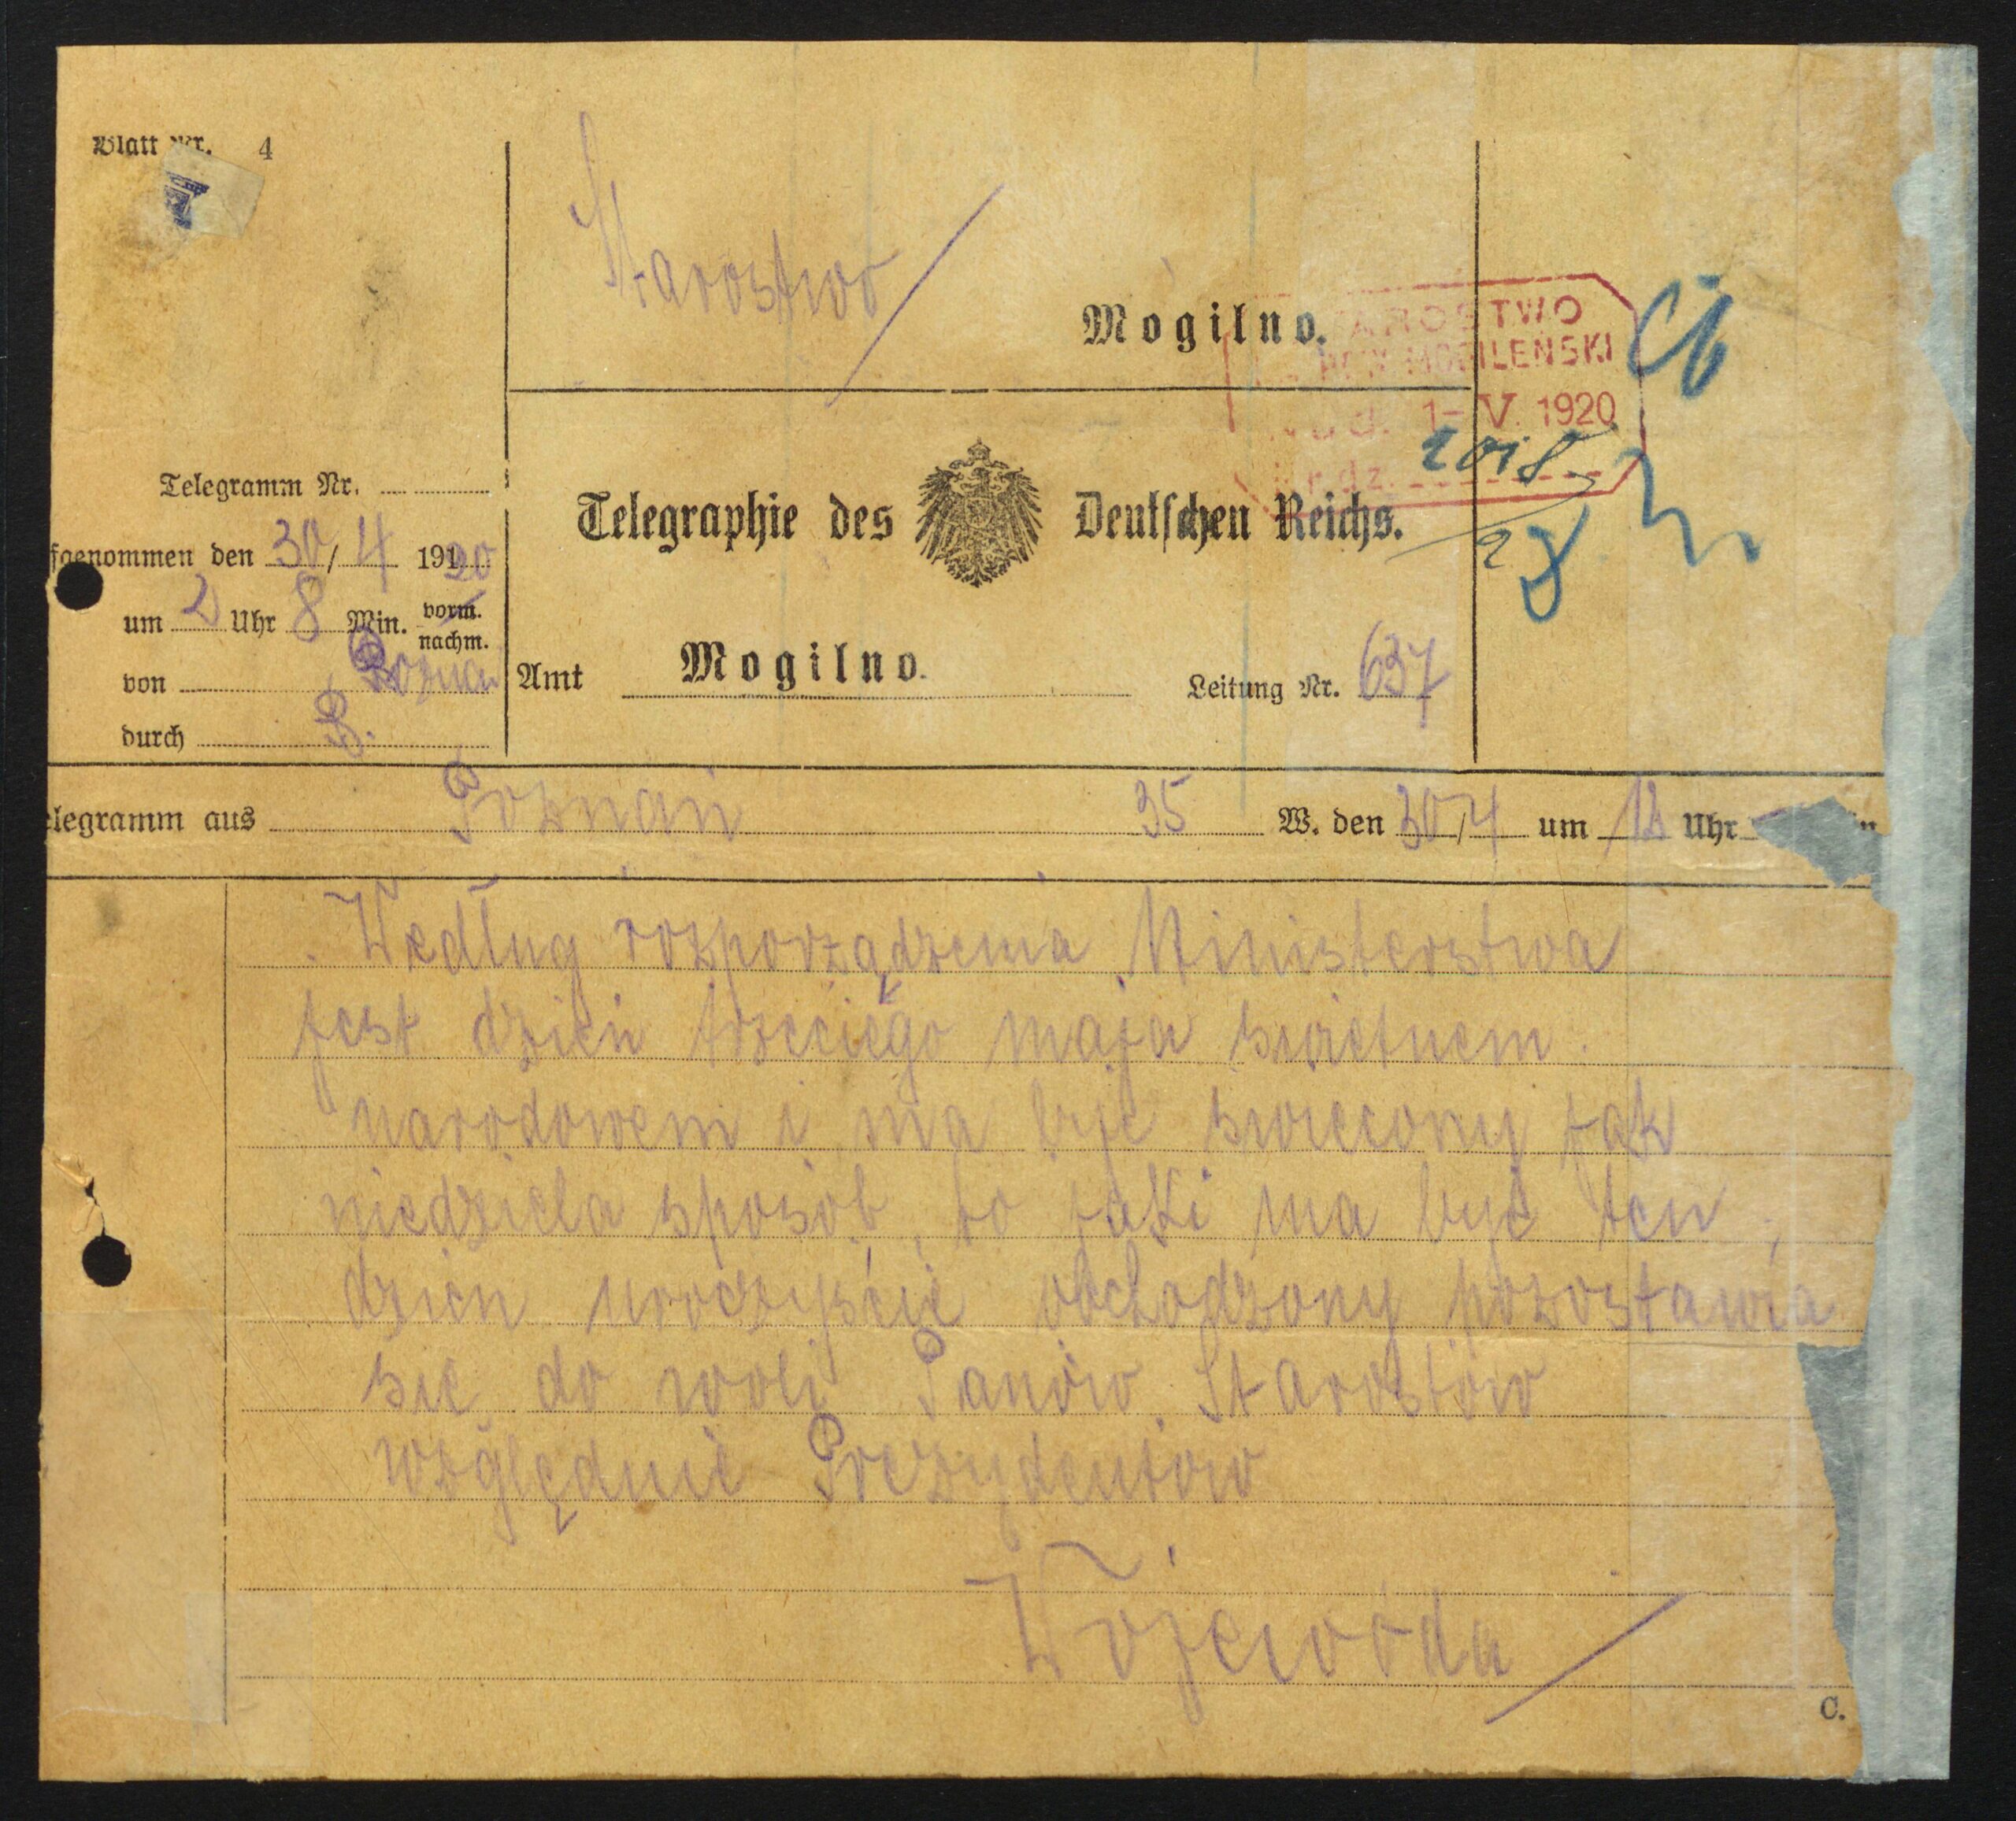 Blatt Nr. 4
Starostwo
Mogilno.
STAROSTWO
MOGILEŃSKI
1-V. 1920
r.dz. 2018
Telegramm Nr.
fgenommen den 30/4 1920
um 2 Uhr 8 Min. vorm.
nachm.
von Poznań
durch P.
Telegraphie des Deutschen Reichs.
Amt Mogilno. Leitung Nr. 637
elegramm aus Poznań 35 W. den 30/4 um 12 Uhr
Według rozporządzenia Ministerstwa
jest dzień trzeciego maja świetnem
narodowem i ma być święcony jak
niedziela sposób, to jaki ma być ten
dzień uroczyście obchodzony pozostawia
się do woli Panów Starostów
względnie Prezydentów
Wojewóda
C.